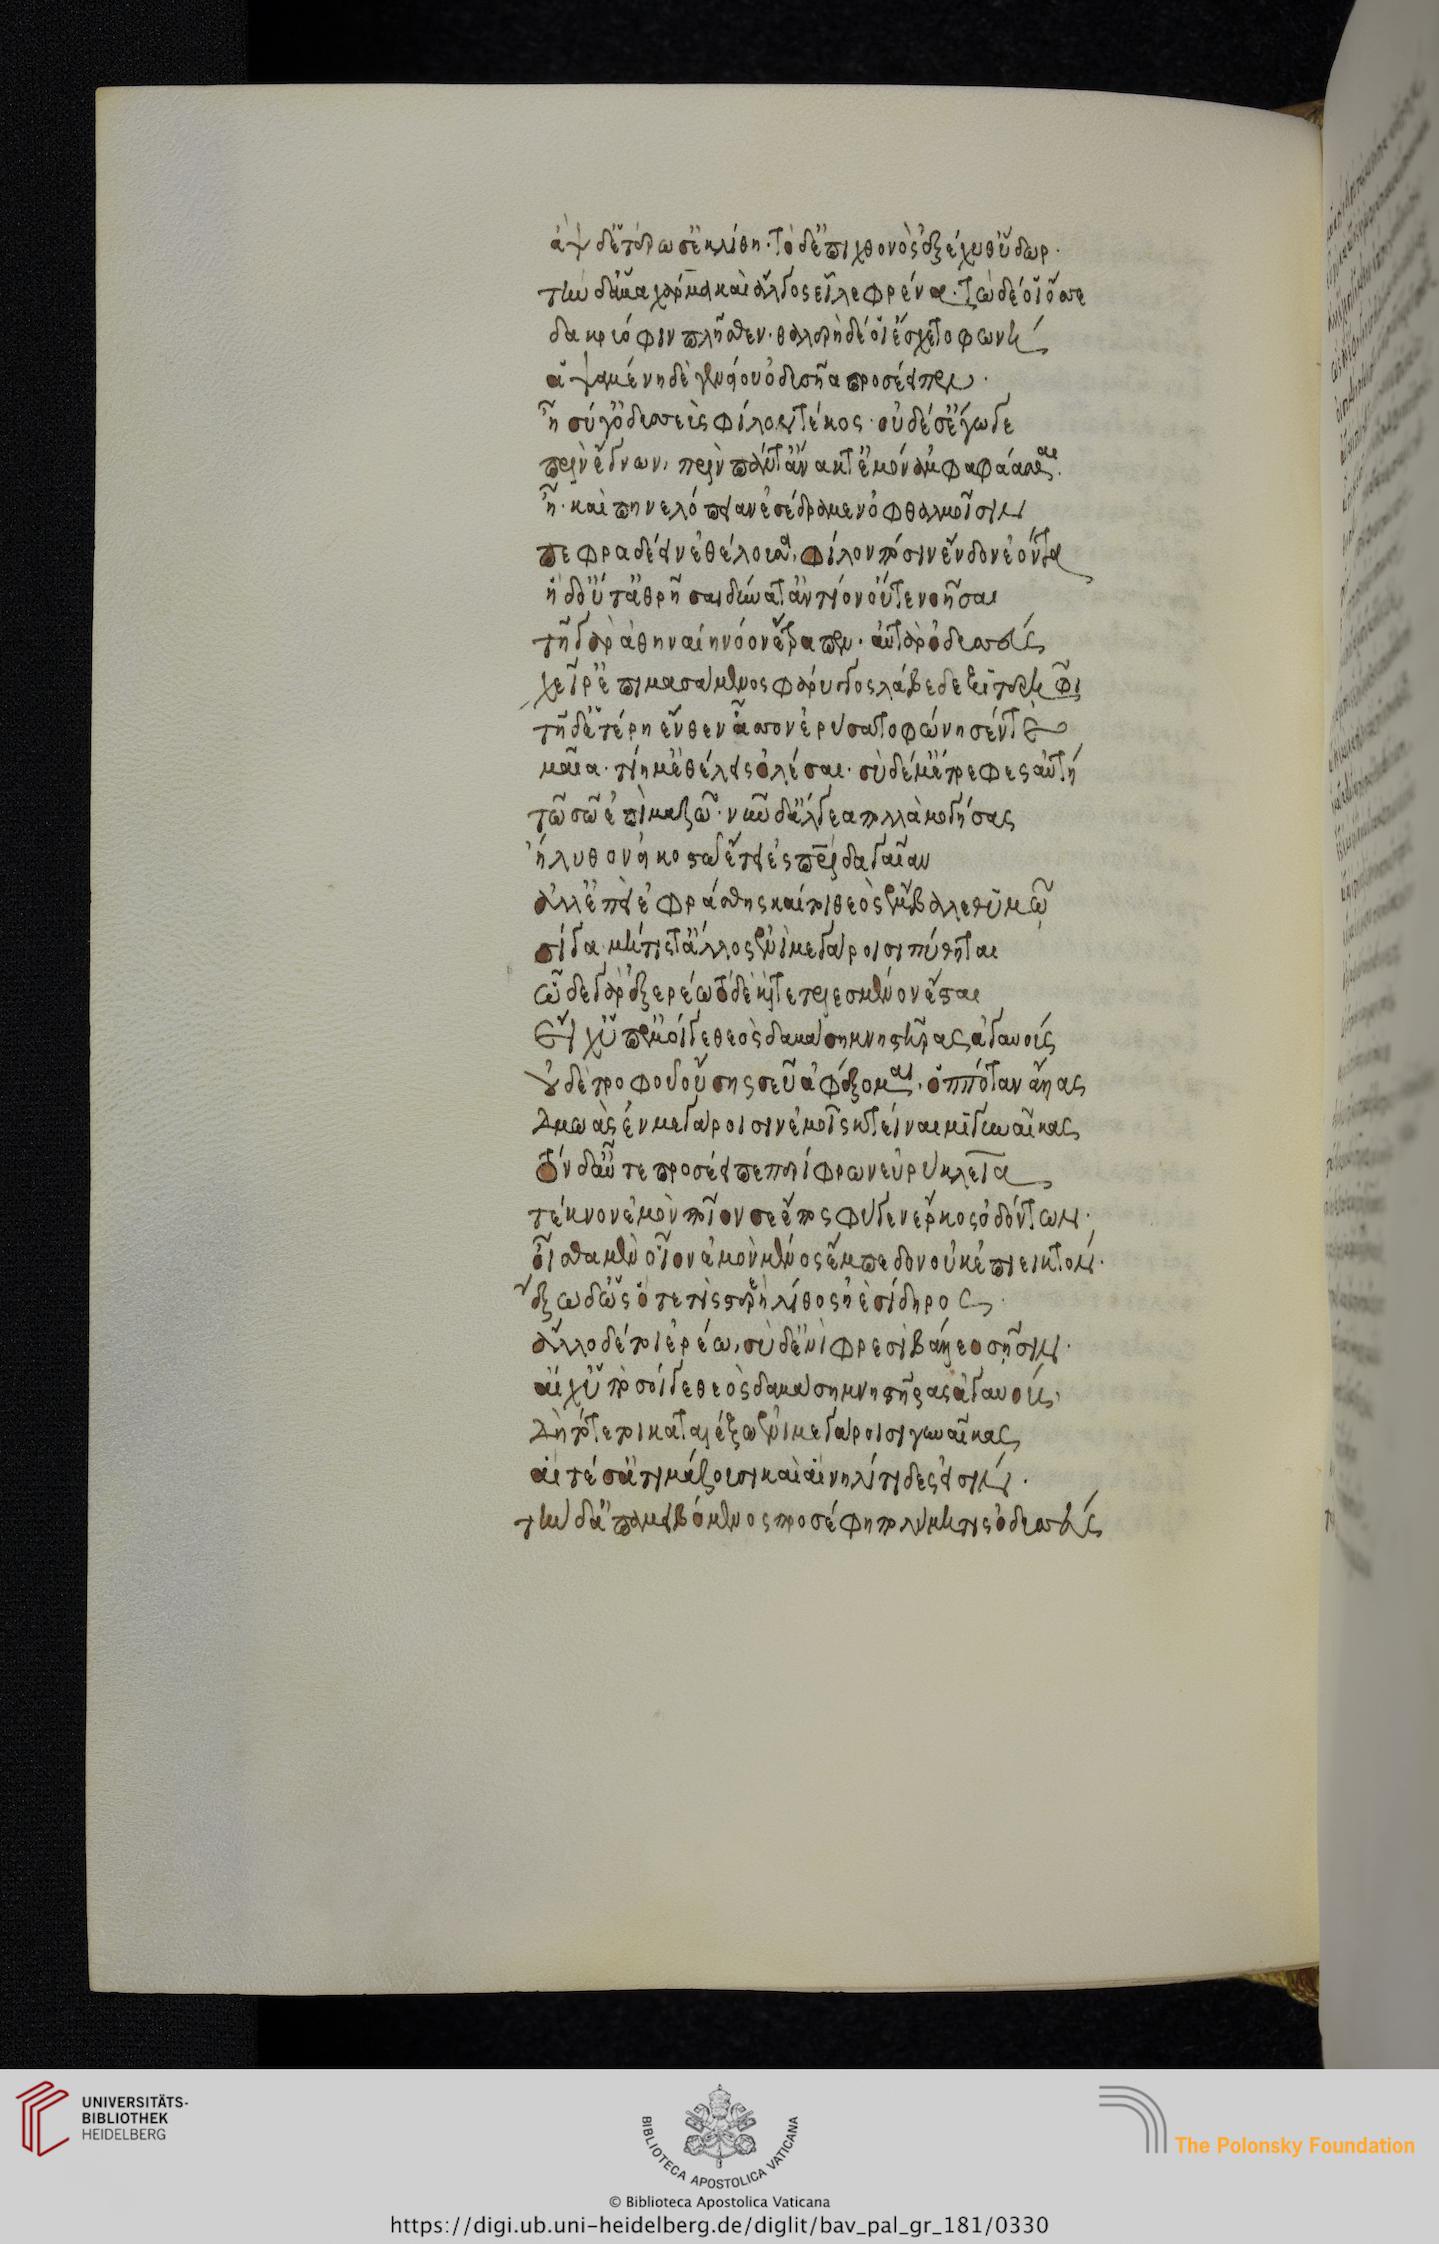 ἂψ δ' ἑτέρωσ' ἐκλίθη· τὸ δ' ἐπι χθονὸς ἐξέχυθ' ὕδωρ·
τὴν δ' ἅμα χάρμα καὶ ἄλγος εἷλε φρένα· τὼ δέ οἱ ὄσσε
δακρυόφιν πλῆσθεν· θαλερὴ δέ οἱ ἔσχετο φωνή
ἁψαμένη δὲ γενείου ὀδυσῆα προσέειπεν·
ἦ σύ γ' ὀδυσσεὺς φίλον τέκος· οὐδέ σ' ἔγωγε
πρὶν ἔγνων, πρὶν πάντ' ἄνακτ' ἐμὸν ἀμφαφάασθαι.
ἦ· καὶ πηνελόπειαν ἐσέδραμεν ὀφθαλμοῖσιν
πεφραδέειν ἐθέλουσα, φίλον πόσιν ἔνδον ἐόντα
ἡ δ' οὔτ' ἀθρῆσαι δύνατ' ἀντίον οὔτε νοῆσαι
τῇ γὰρ ἀθηναίη νόον ἔτραπεν· αὐτὰρ ὀδυσσεύς
χεῖρ' ἐπιμασάμενος φάρυγος λάβε δεξιτερῆφι
τῇ δ' ἑτέρη ἕνθεν ἆσσον ἐρύσατο φώνησέν τε
μαῖα· τίη μ' ἐθέλεις ὀλέσαι· σὺ δέ μ' ἔτρεφες αὐτή
τῶ σῶ ἐπὶ μαζῶ· νῦν δ' ἄλγεα πολλὰ μογήσας
ἤλυθον εἰκοστῶ ἔτει ἐς πατρίδα γαῖαν
ἀλλ' ἐπεὶ ἐφράσθης καί τοι θεὸς ἔμβαλλε θυμῶ
σίγα μή τις τ' ἄλλος ἐνὶ μεγάροισι πύθηται
ὧδε γὰρ ἐξερέω τὸ δὲ καὶ τετελεσμένον ἔσται
εἴ χ' ὑπ' ἐμοί γε θεὸς δαμάση μνηστῆρας ἀγαυούς
οὐδὲ τροφοῦ οὔσης σεῦ ἀφέξομαι, ὁππότ' ἂν ἄλλας
δμωὰς ἐν μεγάροισιν ἐμοῖς κτείναιμι γυναῖκας
τὸν δ' αὖτε προσέειπε περίφρων εὐρύκλεια
τέκνον ἐμὸν ποῖον σε ἔπος φύγεν ἕρκος ὀδόντων·
οἶσθα μὲν οἷον ἐμὸν μένος ἔμπεδον οὐκ ἐπιεικτόν·
ἕξω δ' ὡς ὅτε τὶς στερεὴ λίθος ἠὲ σίδηρος·
ἄλλο δέ τοι ἐρέω, σὺ δ' ἐνὶ φρεσὶ βάλλεο σῆσιν·
αἴ χ' ὑπὸ σοί γε θεὸς δαμάση μνηστῆρας ἀγαυούς
δὴ τότε τοι καταλέξω ἐνὶ μεγάροισι γυναῖκας
αἵ τέ σ' ἀτιμάζουσι καὶ αἳ νηλίτιδες εἰσίν·
τὴν δ' ἀπαμειβόμενος προσέφη πολύμητις ὀδυσσεύς
UNIVERSITÄTS-
BIBLIOTHEK
HEIDELBERG
BIBLIOTECA APOSTOLICA VATICANA
The Polonsky Foundation
© Biblioteca Apostolica Vaticana
https://digi.ub.uni-heidelberg.de/diglit/bav_pal_gr_181/0330